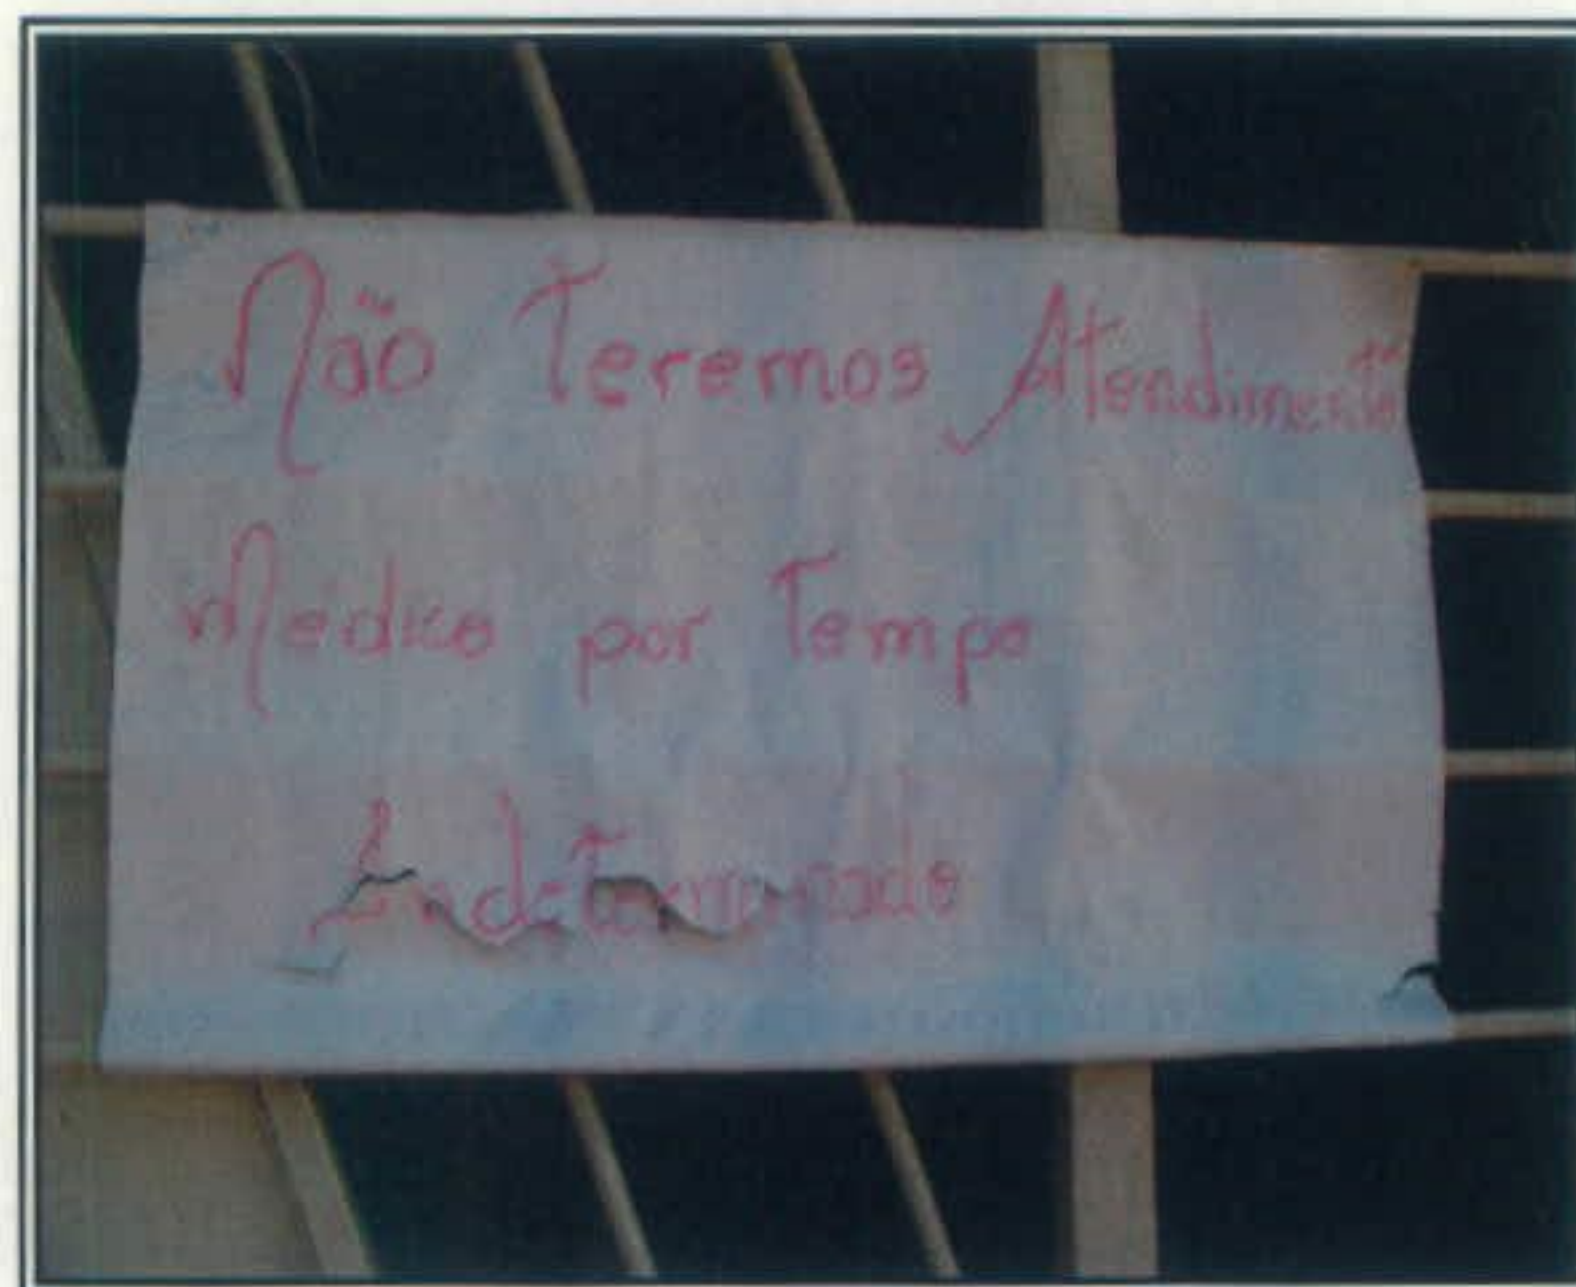 Não Teremos Atendimento
Medico por Tempo
Indeterminado